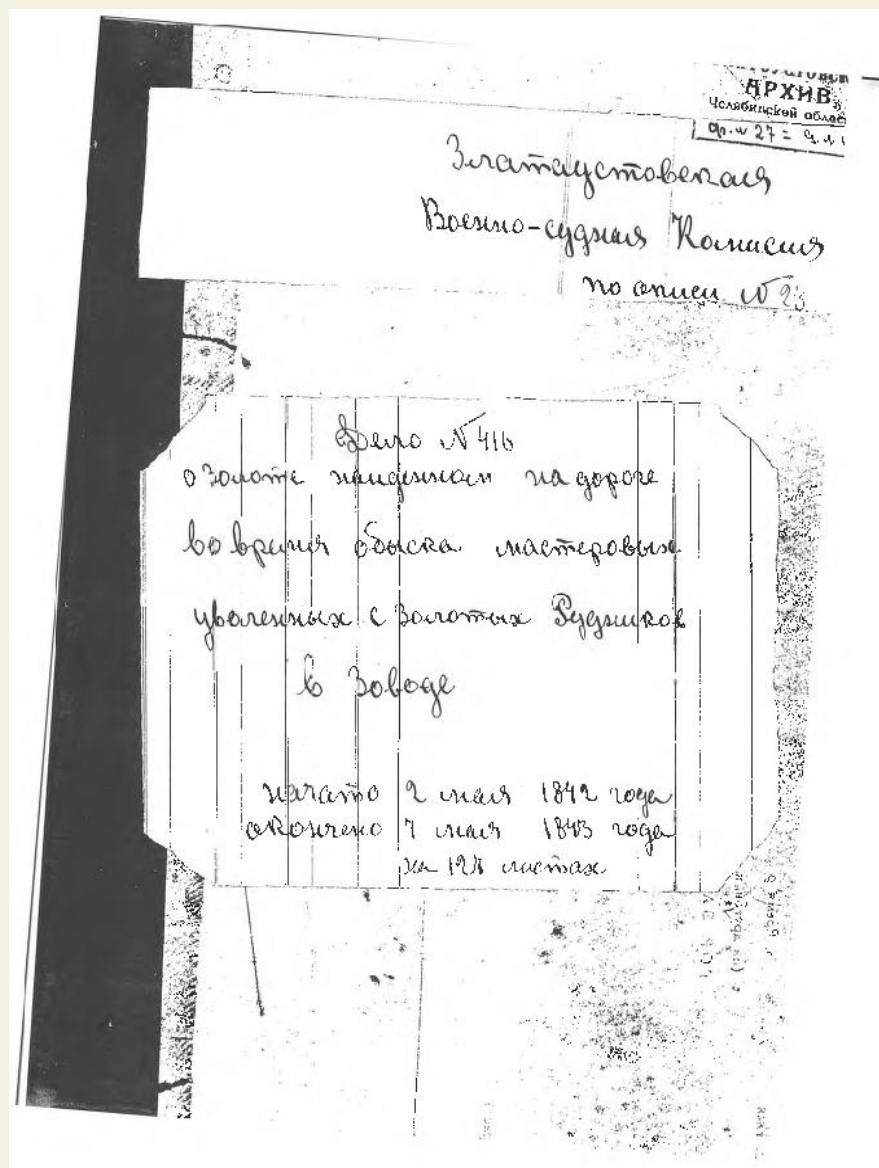 АРХИВ
Челябинской облас
Златаустовская
Военно-судная Комисия
по описи №23
Дело №416
о золоте найденном на дороге
во время обыска мастеровых
уволенных с Золотых Рудников
в Зоводе
начато 2 мая 1842 года
окончено 7 мая 1843 года
на 128 листах